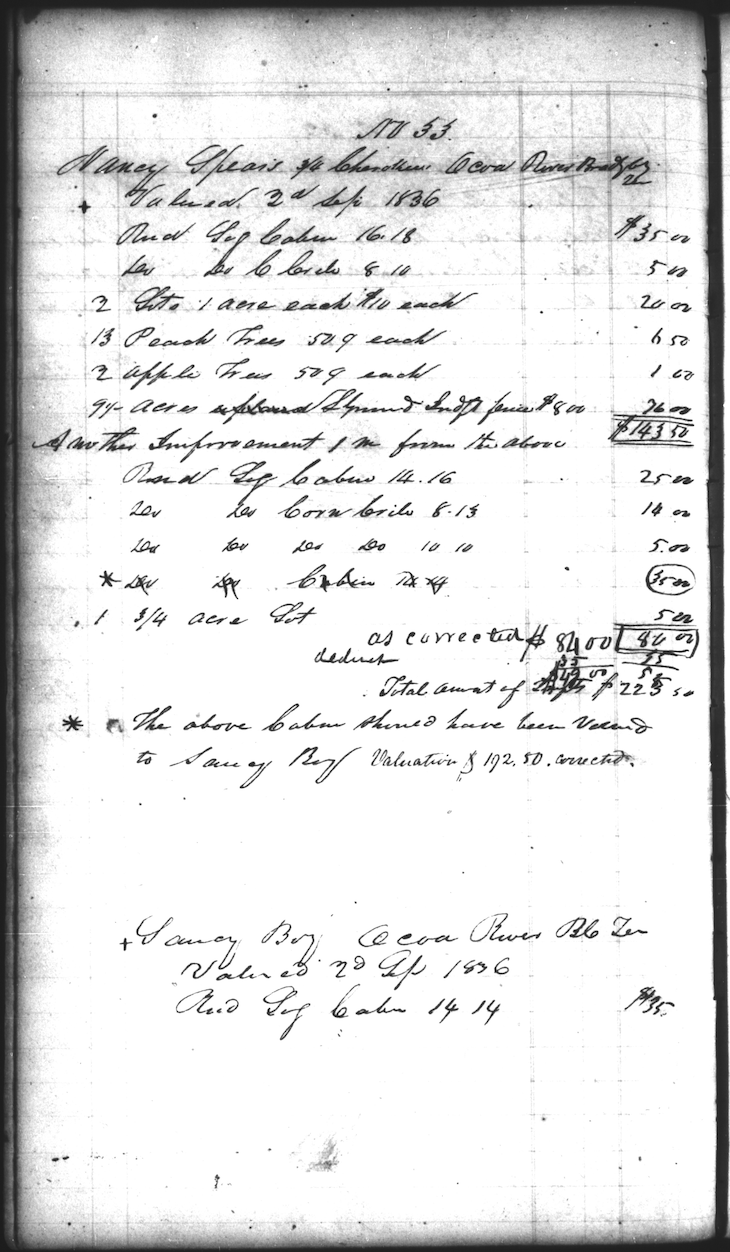 No 53.
Nancy Spears 3/4 Cherokee Ocoa River
+ Valued 2d Sep 1836
Rnd Log Cabin 16.18 $35 00
Do Do C Crib 8 10 5 00
2 Lots 1 acre each $10 each 20 00
13 Peach Trees 50 ¢ each 6 50
2 apple Trees 50 ¢ each 1 00
9½ acres upland $8 00 76 00
Another Improvement 1 m from the above $143 50
Rnd Log Cabin 14.16 25 00
Do Do Corn Crib 8.13 14 00
Do Do Do Do 10 10 5.00
* Do Do Cabin 14 14 35 00
1 3/4 acre Lot 5 00
as corrected $ 84 00 80 00
deduct 35 35
49 00
Total amount of $ 223 50
* The above Cabin should have been Valued
to Saucy Boy Valuation $ 192.50. corrected.
+ Saucy Boy Ocoa River Ten
Valued 2d Sep 1836
Rnd Log Cabin 14 14 $35.